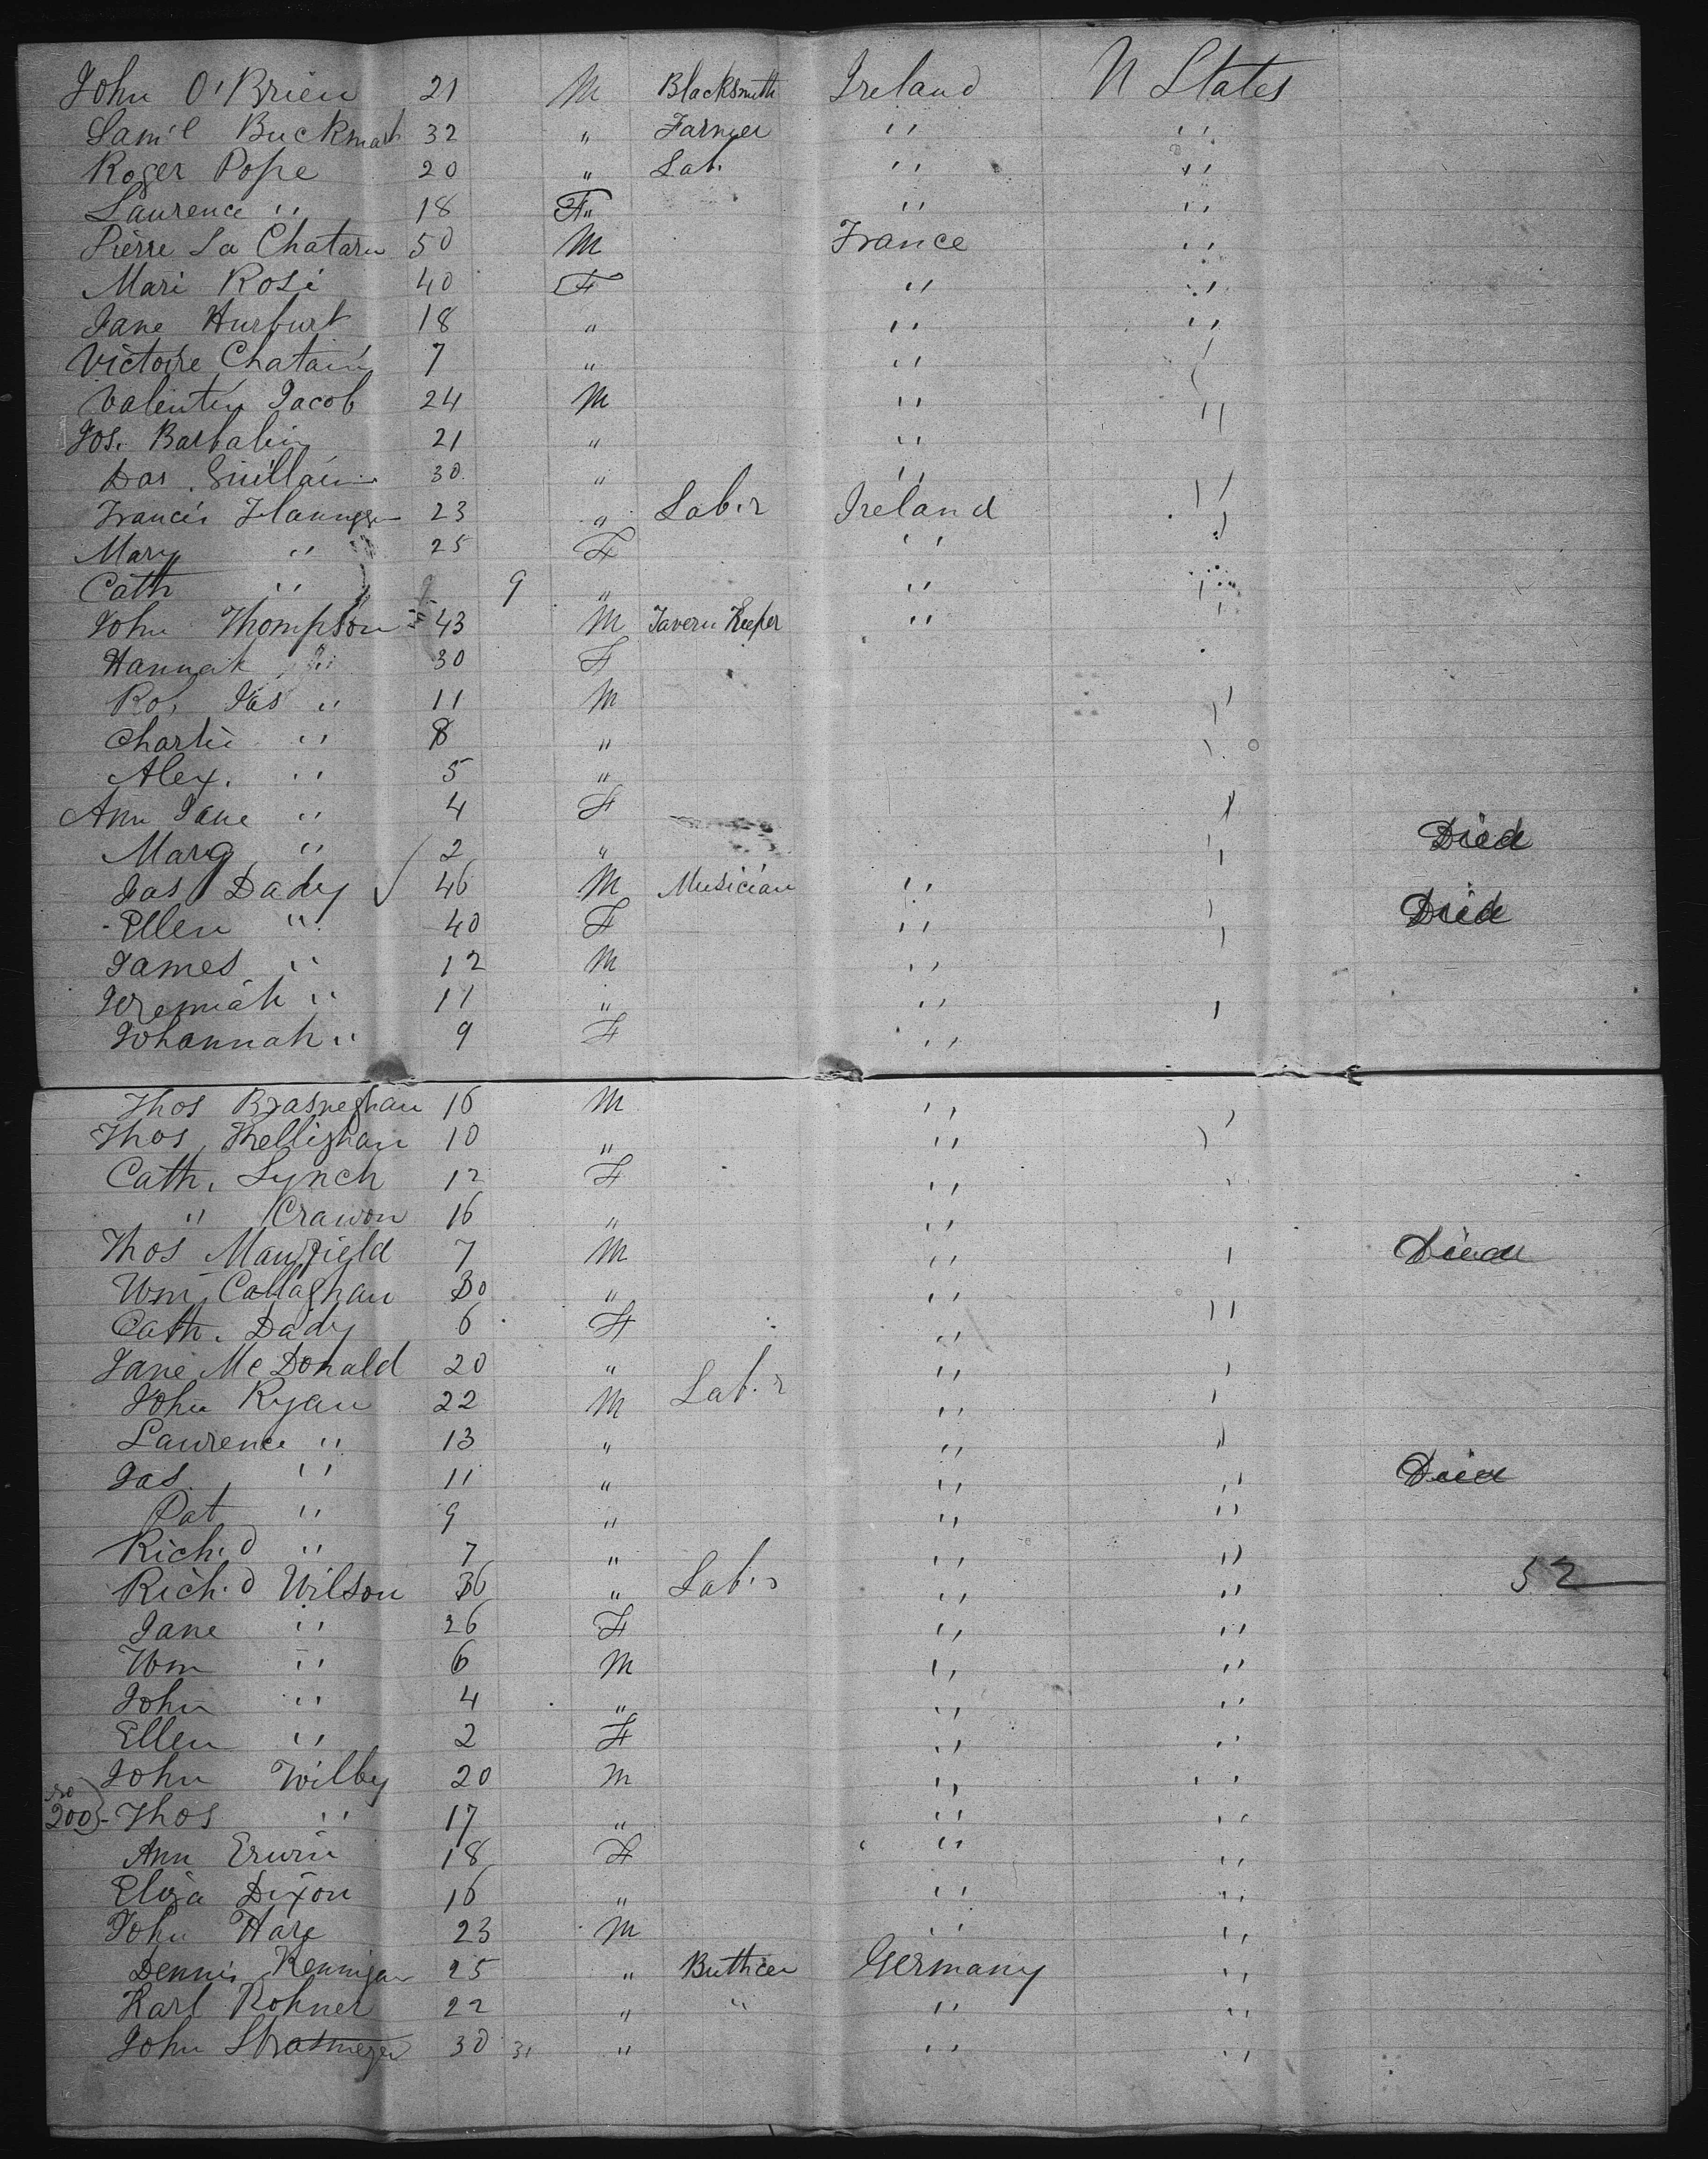 John O'Brien 21 M Blacksmith Ireland U States
Sam'l Buckmast 32 " Farmer " "
Roger Pope 20 " Lab. " "
Laurence " 18 F " "
Pierre La Chatain 50 M France "
Mari Rosi 40 F " "
Jane Hurburt 18 " " "
Victoire Chatain 7 " " "
Valentin Jacob 24 M " "
Jos. Barbalin 21 " "
Das. Guillain 30 " " "
Francis Flannigan 23 " Lab.r Ireland "
Mary " 25 F " "
Cath " 9 " " "
John Thompson 43 M Tavern Keeper " "
Hannah " 30 F
Ro. Jas " 11 M "
Charlie " 8 " "
Alex. " 5 "
Ann Jane " 4 F "
Marg " 2 " " Died
Jas Dady 46 M Musician "
Ellen " 40 F " " Died
James " 12 M " "
Jeremiah " 11 " "
Johannah " 9 F "
Thos Brasneghan 16 M " "
Thos. Kellighan 10 " " "
Cath. Lynch 12 F " "
" Crawon 16 " "
Thos Manfield 7 M " " Died
Wm Callaghan 30 " "
Cath. Dady 6 F " "
Jane McDonald 20 " " "
John Ryan 22 M Lab.r " "
Lawrence " 13 " " "
Jas. " 11 " " " Died
Pat " 9 " " "
Rich.d " 7 " " "
Rich.d Wilson 36 " Lab.r " " 52
Jane " 26 F " "
Wm " 6 M " "
John " 4 " " "
Ellen " 2 F " "
John Wilby 20 M " "
No 200 - Thos " 17 " " "
Ann Erwin 18 F " "
Eliza Dixon 16 " " "
John Hare 23 M " "
Dennis Kennigan 25 " Buthcer Germany "
Karl Rohner 22 " " " "
John Strasmeyer 30 31 " " "